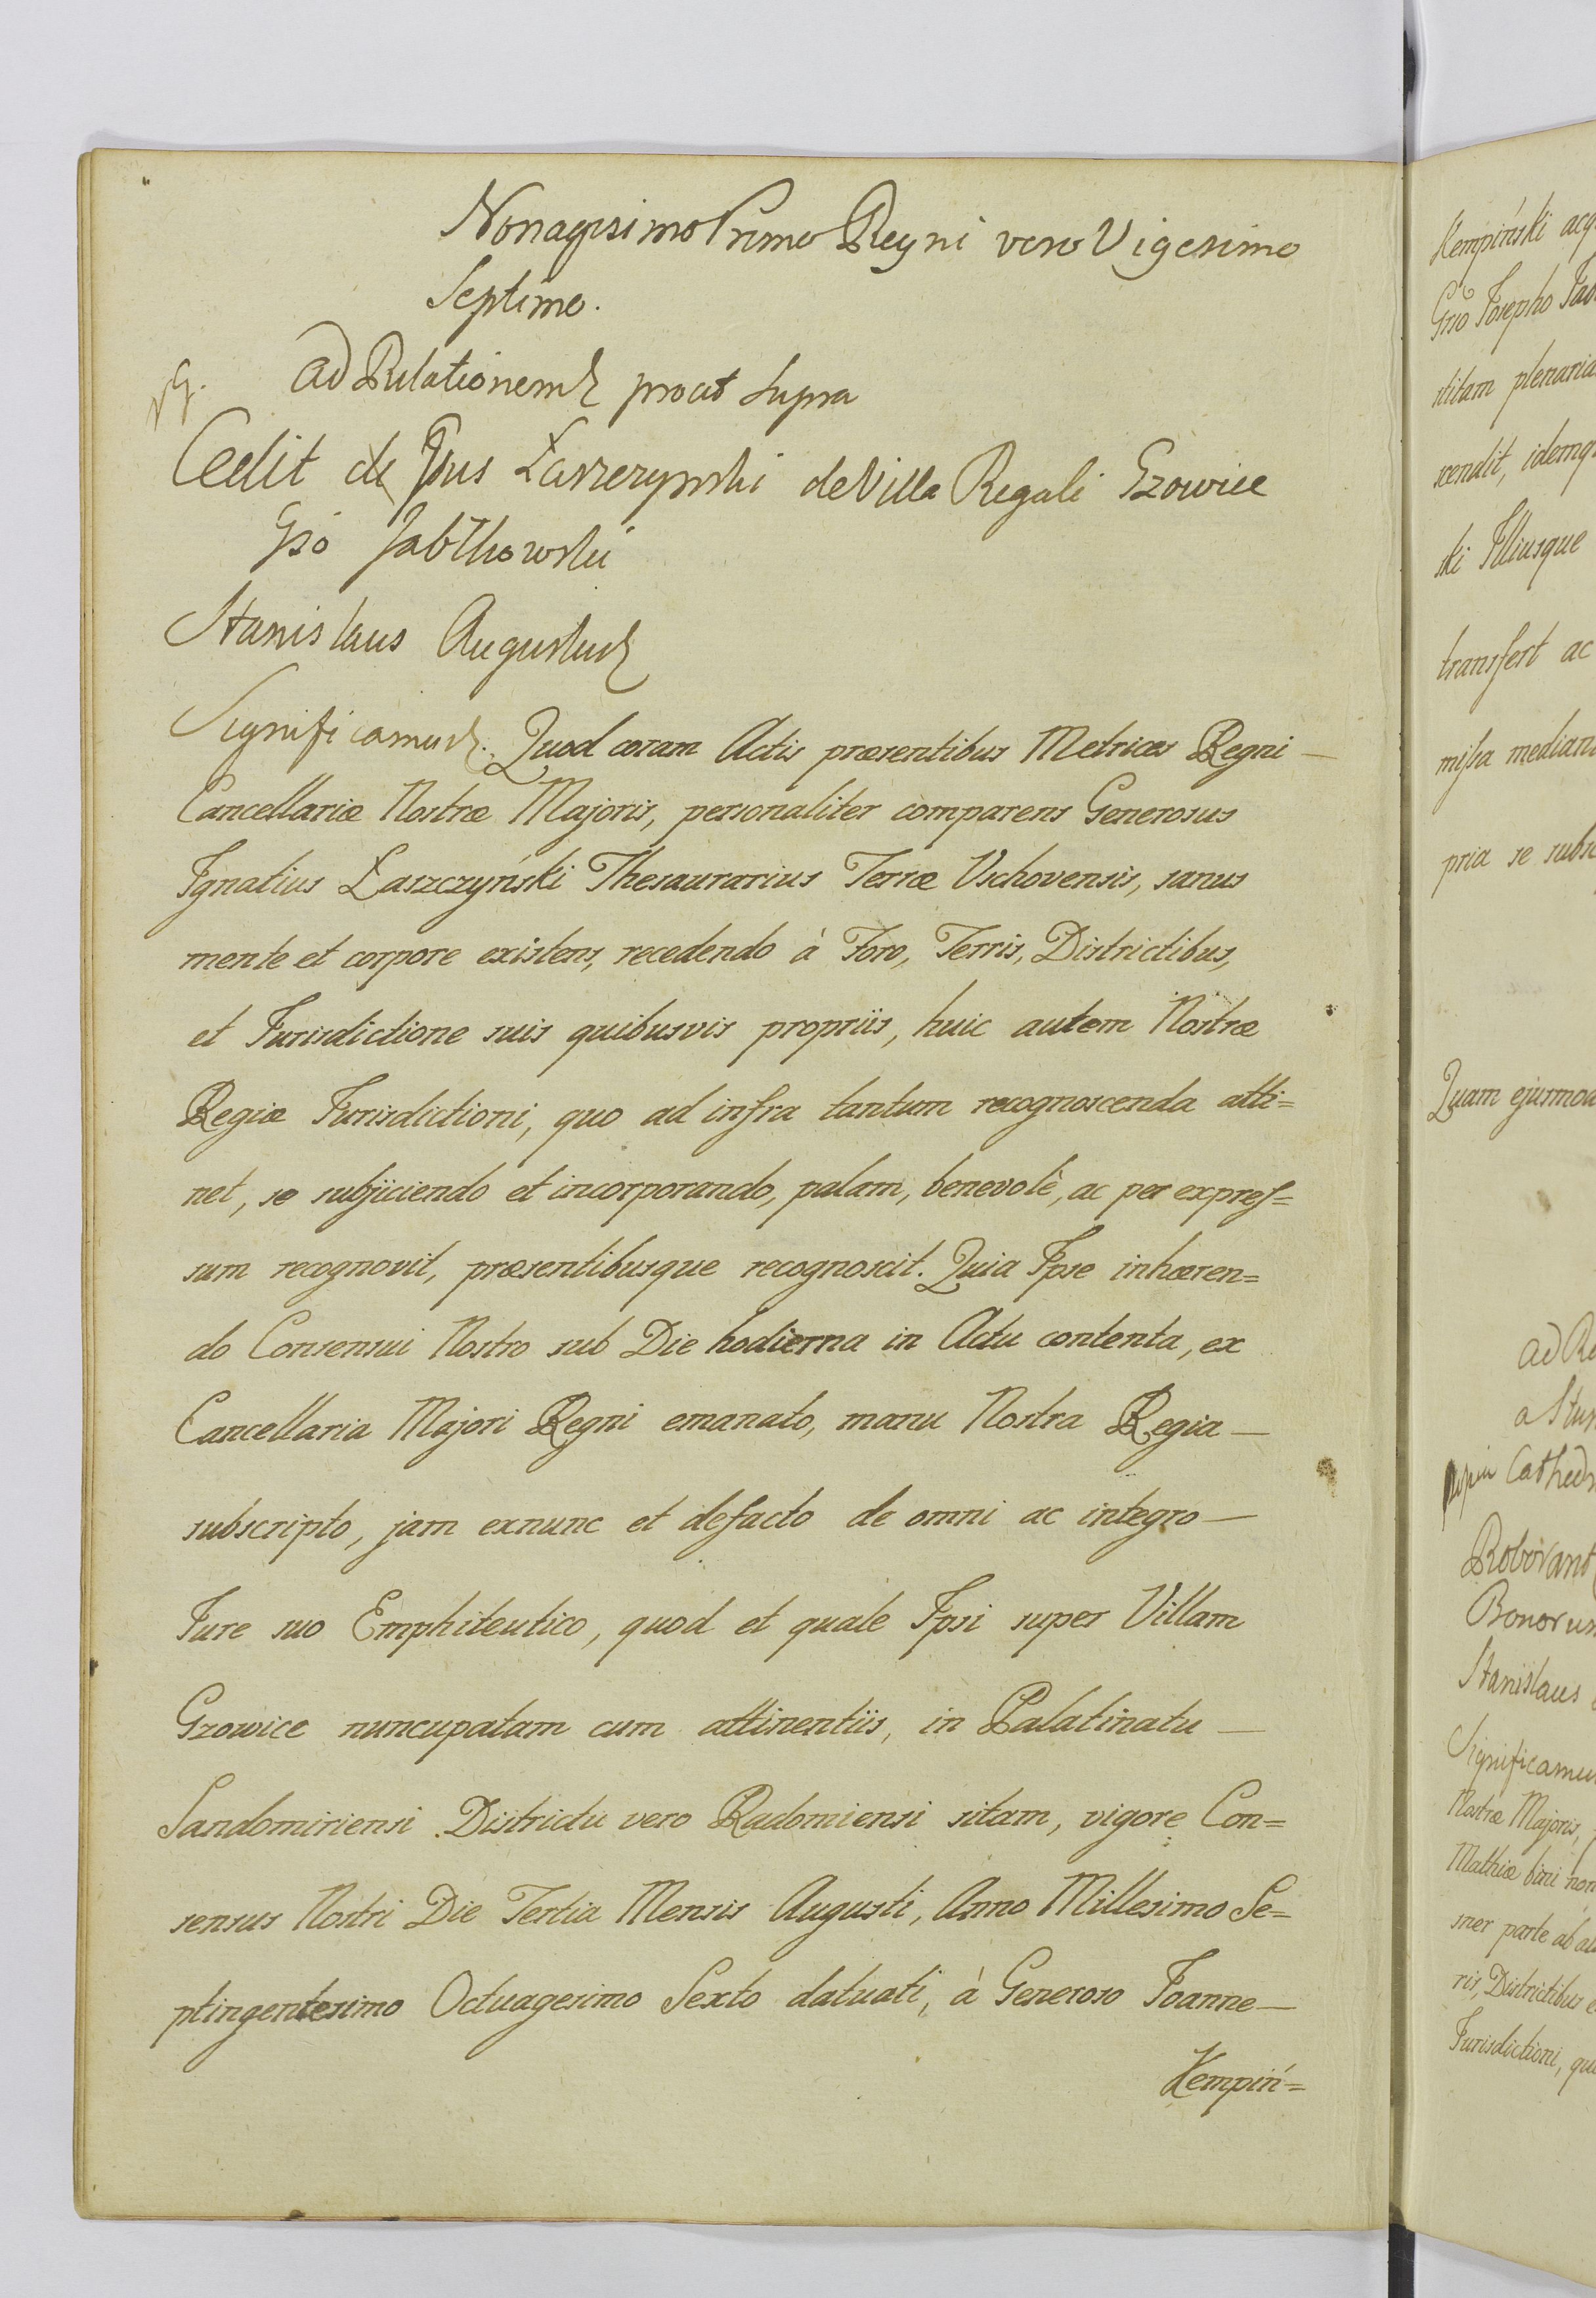 Nonagesimo Primo Regni vero Vigesimo
Septimo.
Ad Relationem prout supra
Cedit de Gsus Łaszczynski de Villa Regali Gzowice
Gso Jabłkowski
Stanislaus Augustus
Significamus. Quod coram Actis præsentibus Metrices Regni —
Cancellariæ Nostræ Majoris, personaliter comparens Generosus
Ignatius Łaszczyński Thesaurarius Terræ Vschovensis, sanus
mente et corpore existens, recedendo à Foro, Terris, Districtibus,
et Jurisdictione suis quibusvis propriis, huic autem Nostræ
Regiæ Jurisdictioni, quo ad infra tantum recognoscenda atti=
net, se subjiciendo et incorporando, palam, benevolè, ac per expres=
sum recognovit, præsentibusque recognoscit. Quia Ipse inhæren=
do Consensui Nostro sub Die hodierna in Actu contenta, ex
Cancellaria Majori Regni emanato, manu Nostra Regia —
subscripto, jam exnunc et defacto de omni ac integro —
Jure suo Emphiteutico, quod et quale Ipsi super Villam
Gzowice nuncupatam cum attinentiis, in Palatinatu —
Sandomiriensi Districtu vero Radomiensi sitam, vigore Con=
sensus Nostri Die Tertia Mensis Augusti, Anno Millesimo Se=
ptingentesimo Octuagesimo Sexto datuati, à Generoso Joanne —
Kempiń=
Kempiński acq
Gso Josepho Jab
ditam plenaria
scendit, idemq
ski Illiusque
transfert ac
missa median
pria se subsc
Quam ejusmod
Ad Re
Cathedr
Roborant
Bonorum
Stanislaus
Significamus
Nostræ Majoris,
Mathiæ bini nom
ris, Districtibus e
Jurisdictioni, qu